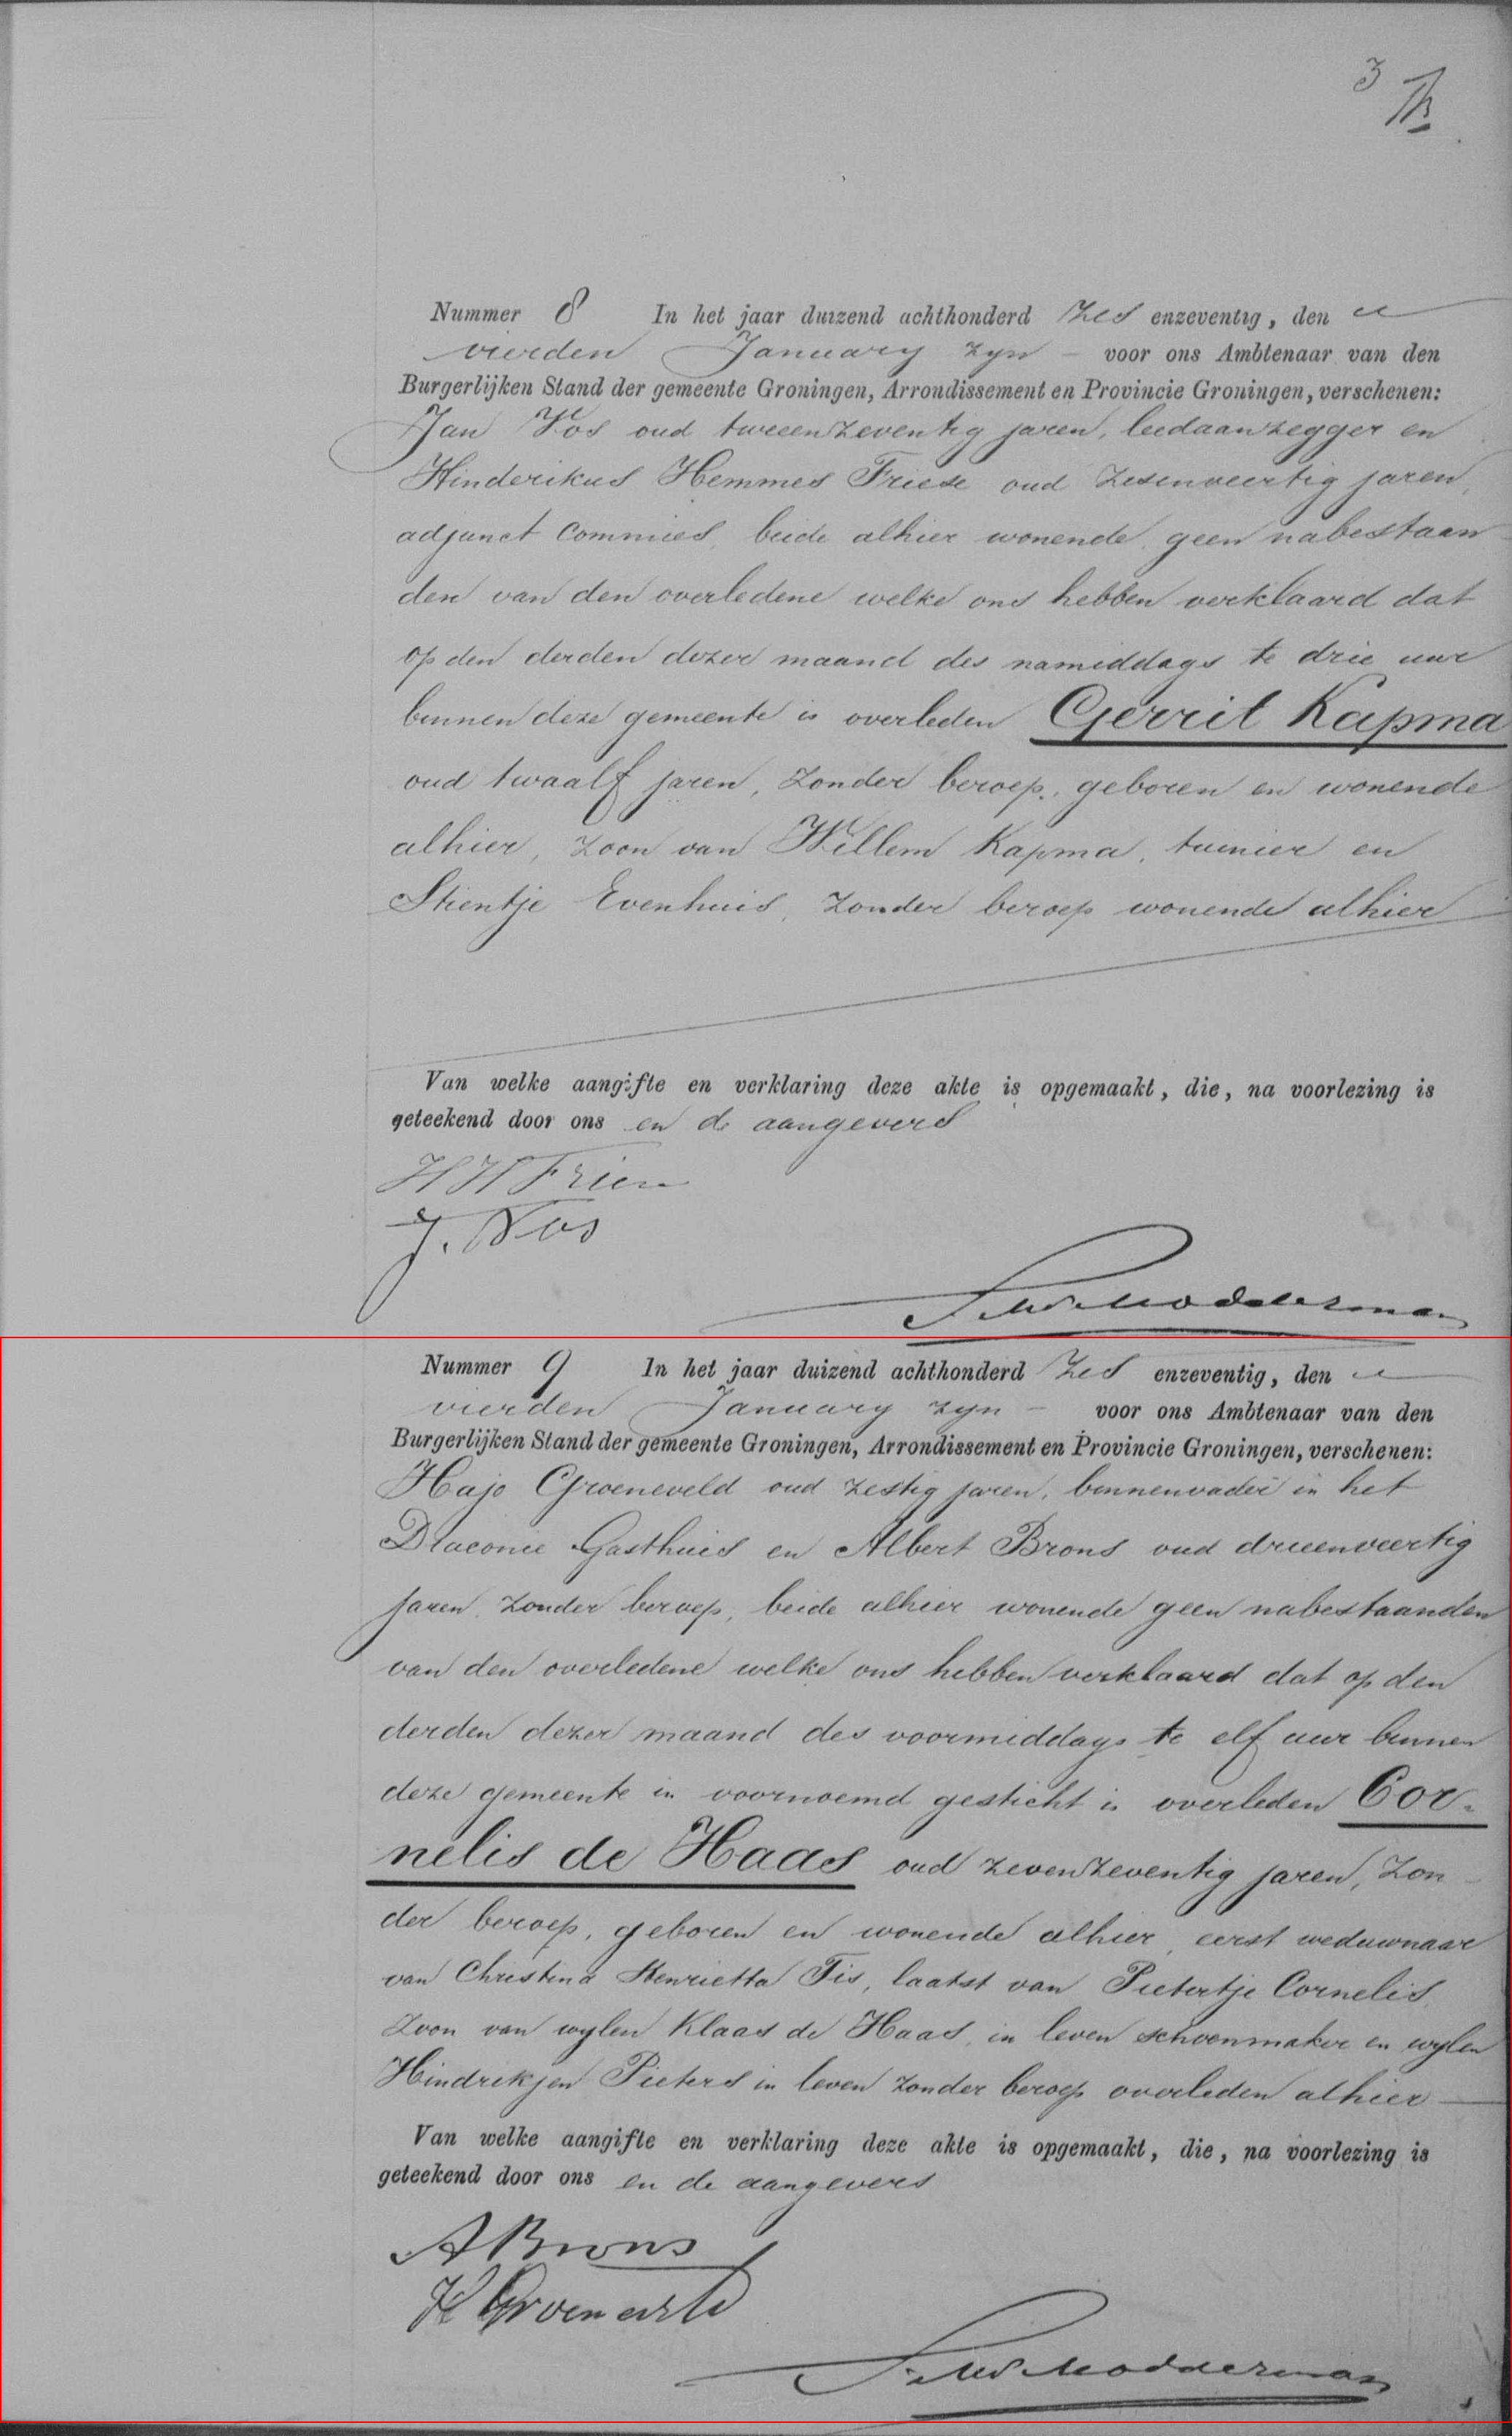 3
Nummer 8 In het jaar duizend achthonderd zes enzeventig, den
vierden January zyn - voor ons Ambtenaar van den
Burgerlijken Stand der gemeente Groningen, Arrondissement en Provincie Groningen, verschenen:
Jan Vos oud tweeenzeventig jaren, leedaanzegger en
Hinderikus Hemmes Friese oud zesenveertig jaren,
adjunct commies, beide alhier wonende, geen nabestaan
den van den overledene welke ons hebben verklaard dat
op den derden dezer maand des namiddags te drie uur
binnen deze gemeente is overleden Gerrit Kapma
oud twaalf jaren, zonder beroep, geboren en wonende
alhier, zoon van Willem Kapma, tuinier en
Stientje Evenhuis, zonder beroep wonende alhier
Van welke aangifte en verklaring deze akte is opgemaakt, die, na voorlezing is
geteekend door ons en de aangevers
H H Friese
J. Vos
Modderman
Nummer 9 In het jaar duizend achthonderd zes enzeventig, den
vierden January zyn - voor ons Ambtenaar van den
Burgerlijken Stand der gemeente Groningen, Arrondissement en Provincie Groningen, verschenen:
Hajo Groeneveld oud zestig jaren, binnenvader in het
Diaconie Gasthuis en Albert Brons oud drieenveertig
jaren, zonder beroep, beide alhier wonende geen nabestaanden
van den overledene welke ons hebben verklaard dat op den
derden dezer maand des voormiddags te elf uur binnen
deze gemeente in voornoemd gesticht is overleden Cor-
nelis de Haas oud zevenzeventig jaren, zon-
der beroep, geboren en wonende alhier, eerst weduwnaar
van Christina Henrietta Tis, laatst van Pietertje Cornelis,
zoon van wylen Klaas de Haas, in leven schoenmaker en wylen
Hindrikjen Pieters in leven zonder beroep overleden alhier
Van welke aangifte en verklaring deze akte is opgemaakt, die, na voorlezing is
geteekend door ons en de aangevers
A Brons
H Groeneveld
Modderman